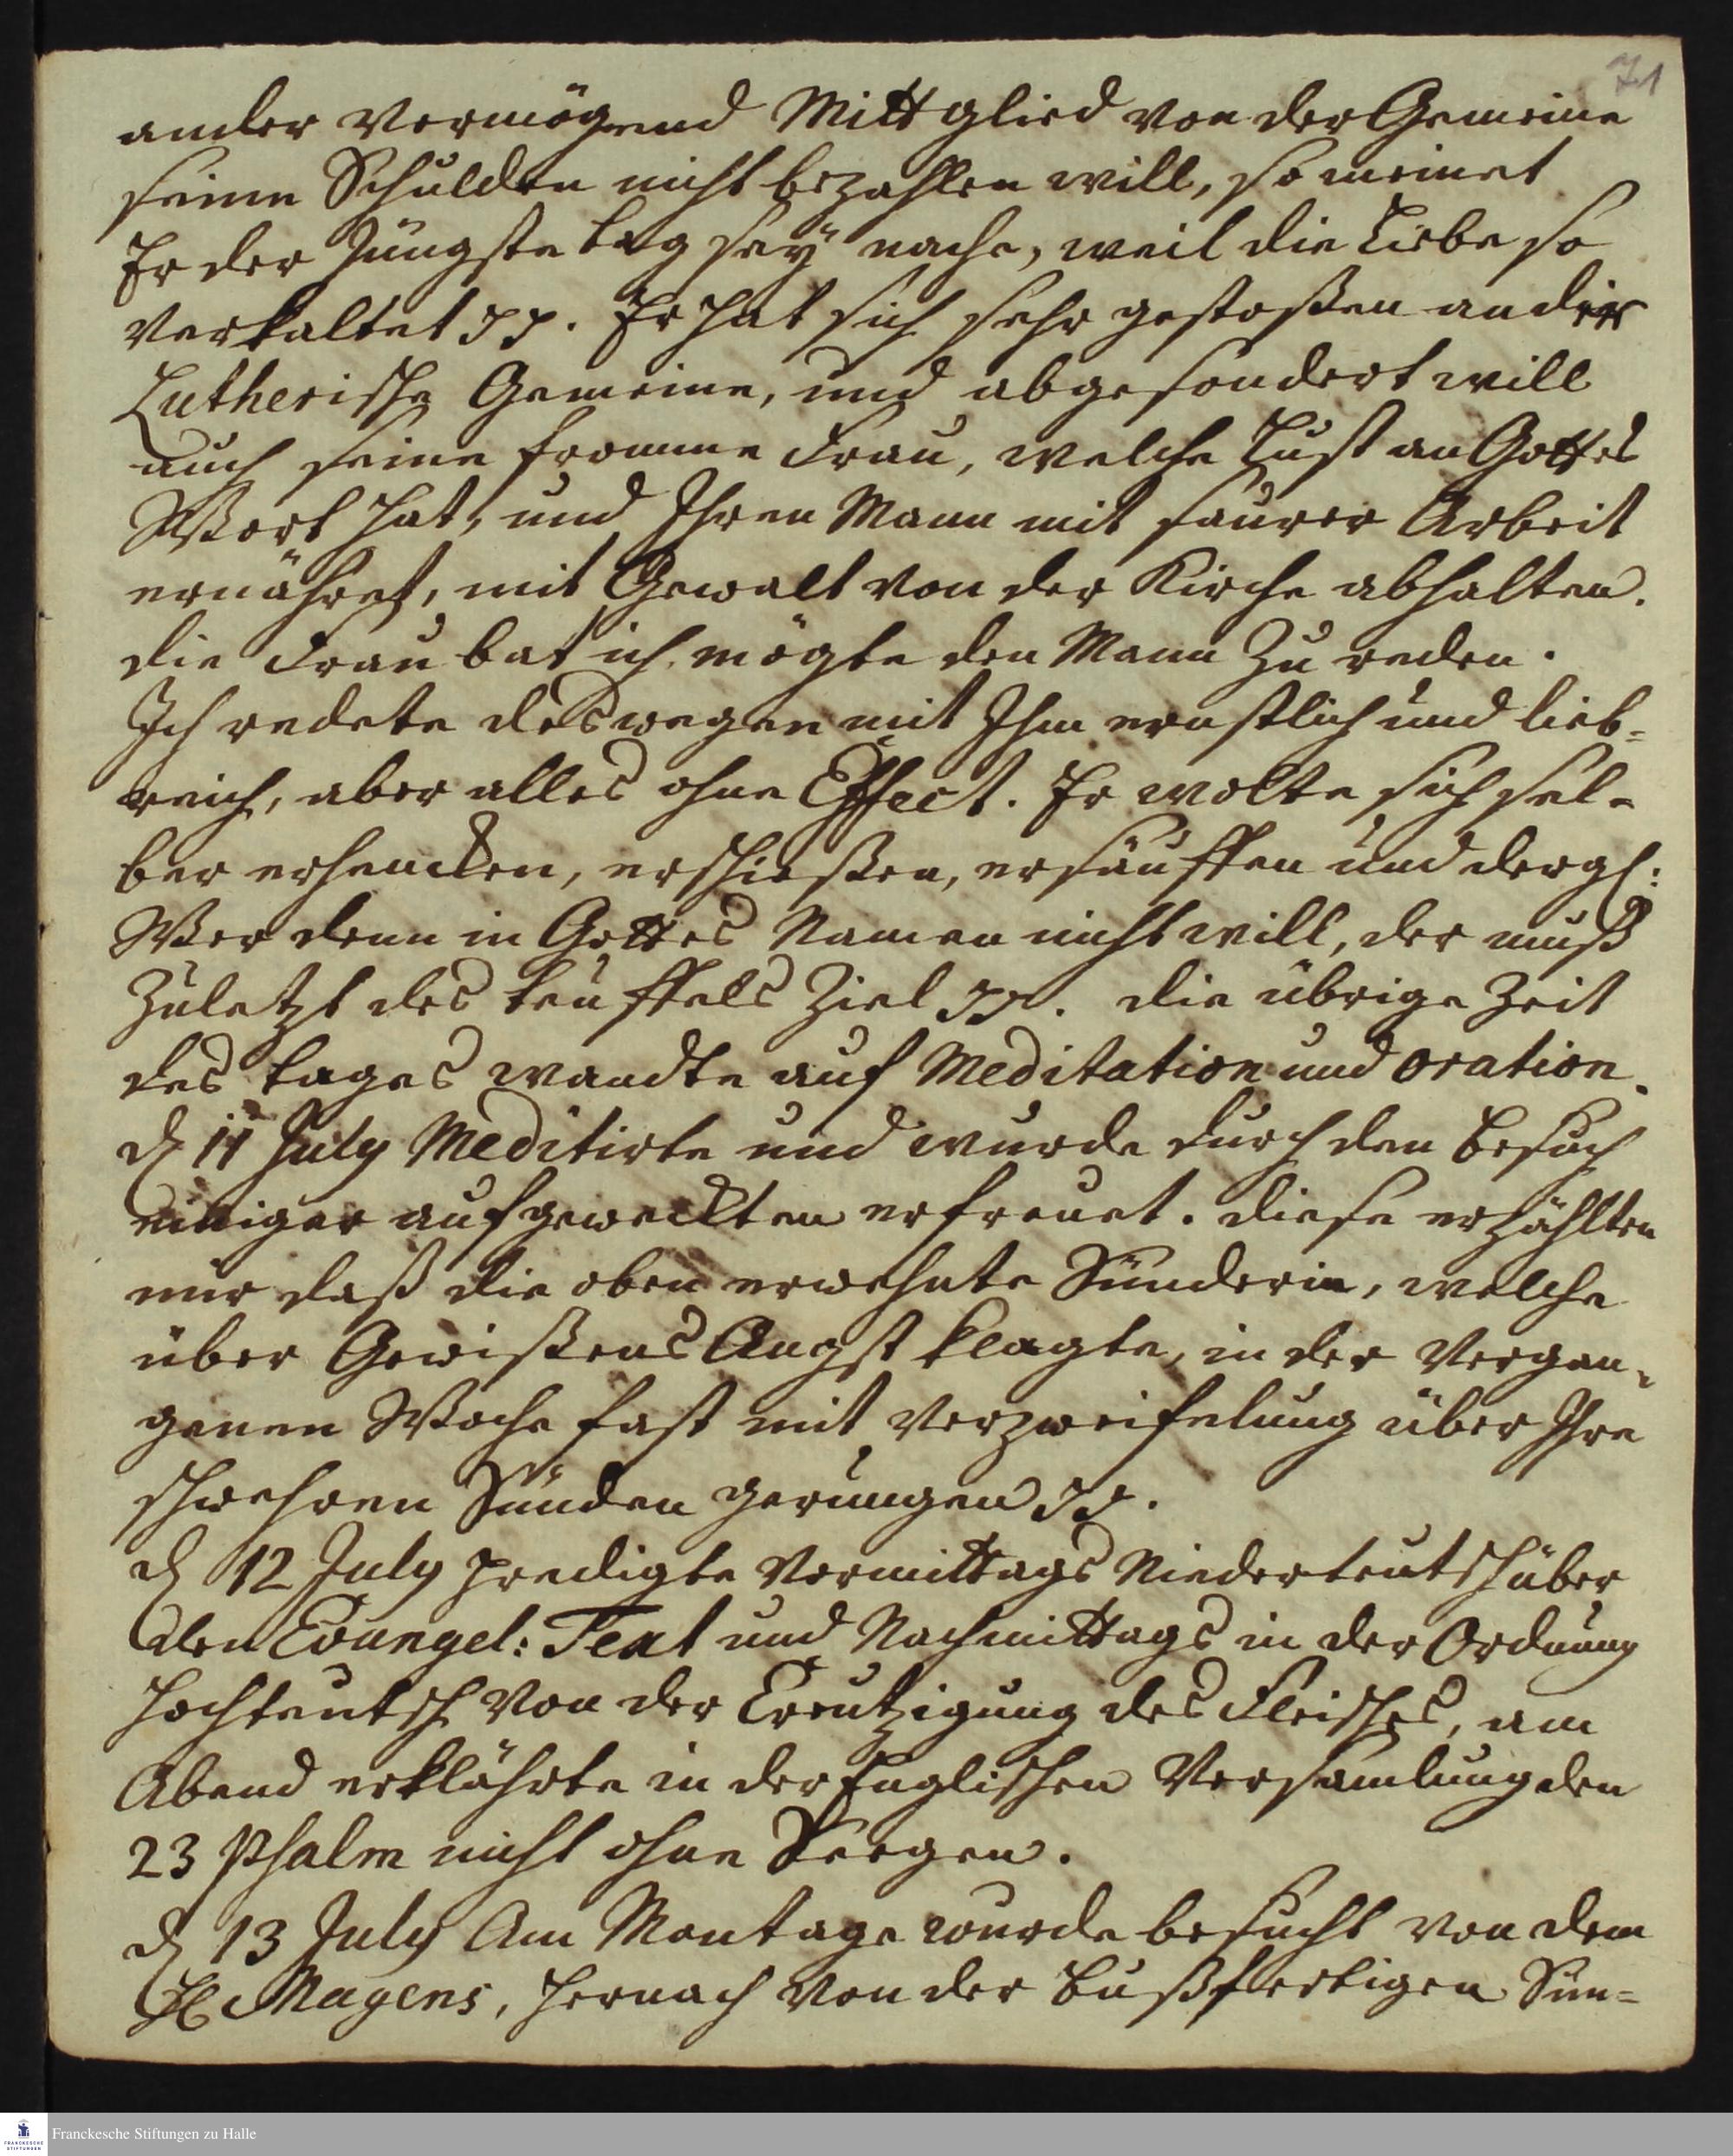 71
ander vermögend Mittglied von der Gemeine
seine Schulden nicht bezahlen will, so meinet
Er der Jüngste tag seÿ nahe, weil die Liebe so
verkaltet pp. Er hat sich sehr gestoßen an die
Lutherische Gemeine, und abgesondert will
auch seine fromme Frau, welche Lust an Gottes
Wort hat, und Ihren Mann mit saurer Arbeit
ernähret, mit Gewalt von der Kirche abhalten.
die Frau bat ich mögte den Mann zu reden.
Ich redete deswegen mit Ihm ernstlich und lieb-
reich, aber alles ohne Effect. Er wolte sich sel-
ber erhencken, erschießen, ersäuffen und dergl:
Wer denn in Gottes Namen nicht will, der muß
zuletzt des teuffels Ziel pp. die übrige Zeit
des tages wandte auf Meditation und oration.
d 11 July Meditirte und wurde durch den besuch
einiger aufgeweckten erfreuet. diese erzählten
mir daß die oben erwehnte Sünderin, welche
über Gewißens Angst klagte, in der vergan-
genen Woche fast mit Verzweifelung über Ihre
schwehren Sünden gerungen pp.
d 12 July predigte Vormittags Niederteutsch über
den Evangel: Text und Nachmittags in der Ordnung
Hochteutsch von der Creutzigung des Fleisches, am
Abend erklährte in der Englischen Versamlung den
23 Psalm nicht ohne Seegen.
d 13 July Am Montage wurde besucht von dem
H Magens, hernach von der bußfertigen Sün-
Franckesche Stiftungen zu Halle
FRANCKESCHE
STIFTUNGEN